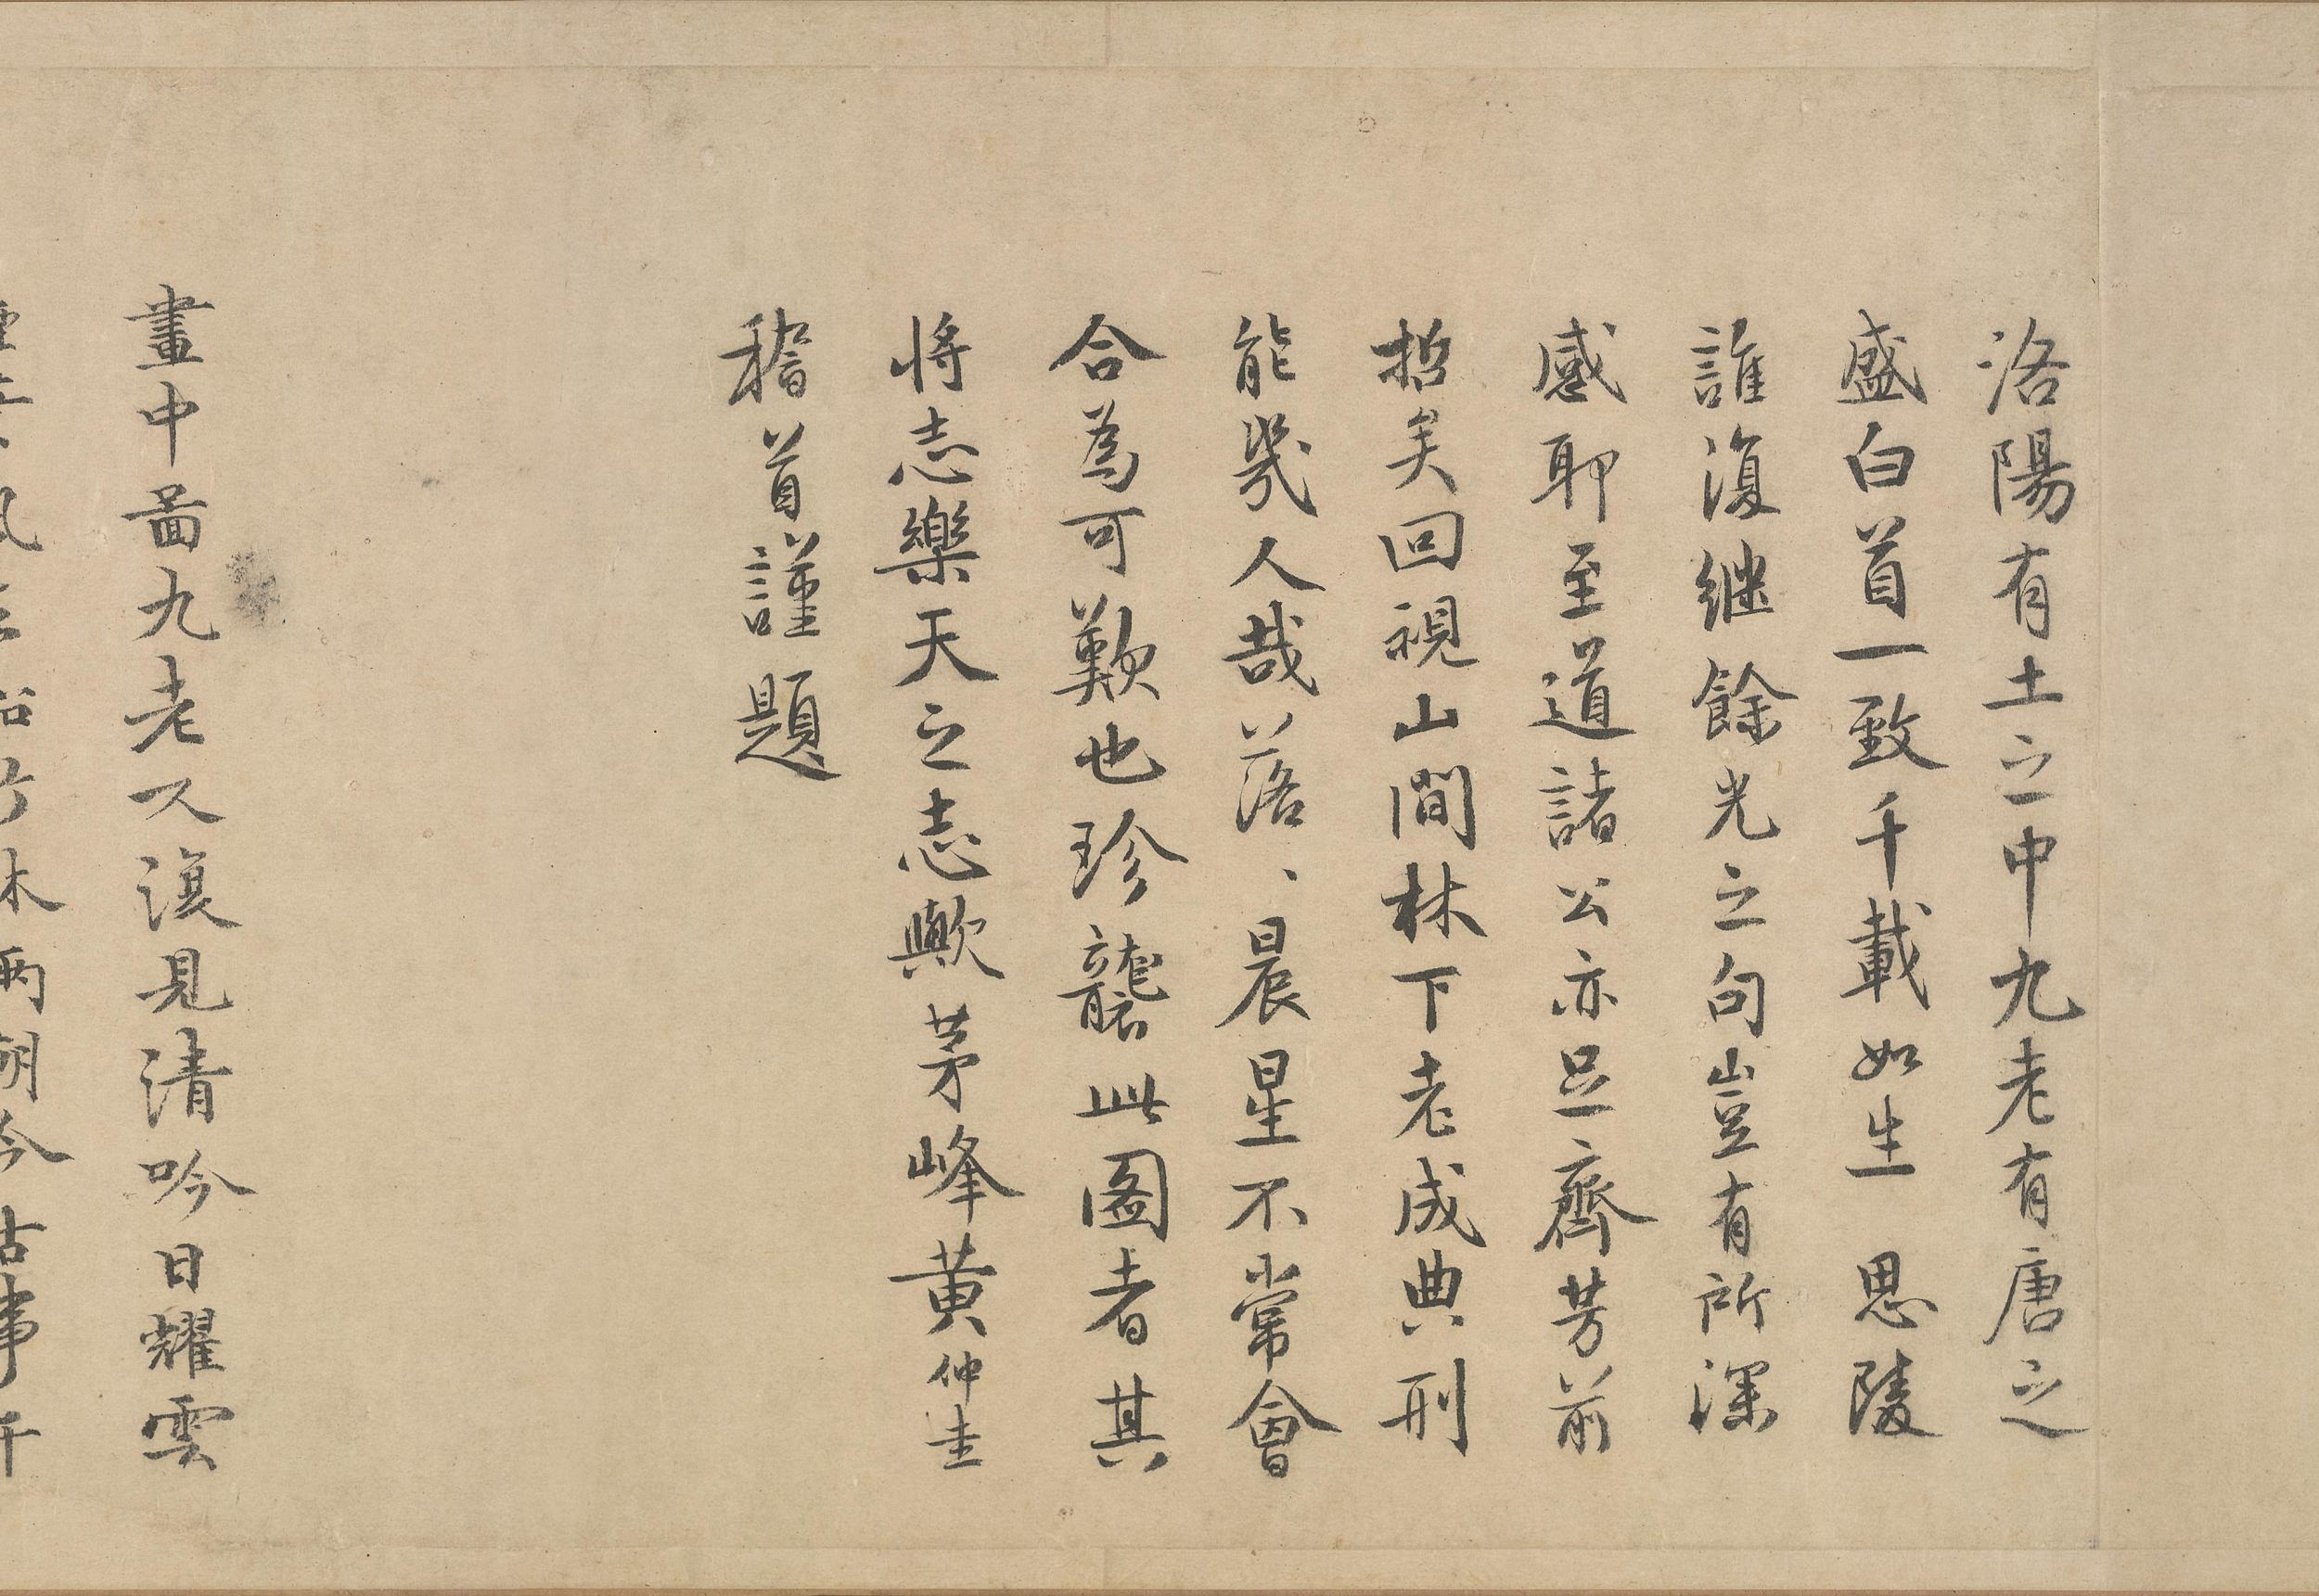 洛陽有土之中九老有唐之
盛白首一致千載如生 思陵
誰復継餘光之句豈有所深
感耶至道諸公亦足齊芳前
哲矣回視山間林下老成典刑
能幾人哉落、晨星不常會
合為可歎也珍襲此圖者其
將志樂天之志歟茅峰黄仲圭
稽首謹題
畫中啚九老又復見清吟日耀雲
風 竹木兩朝今古事千